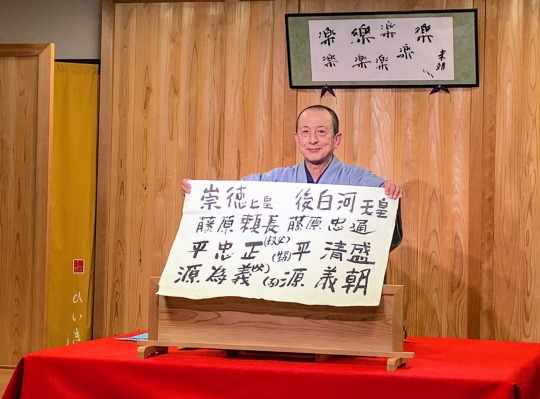 楽 楽 楽 楽
楽 楽 楽 楽
崇徳上皇 後白河天皇
藤原頼長 藤原忠通
平忠正(叔父) (甥)平清盛
源為義(父) (子)源義朝